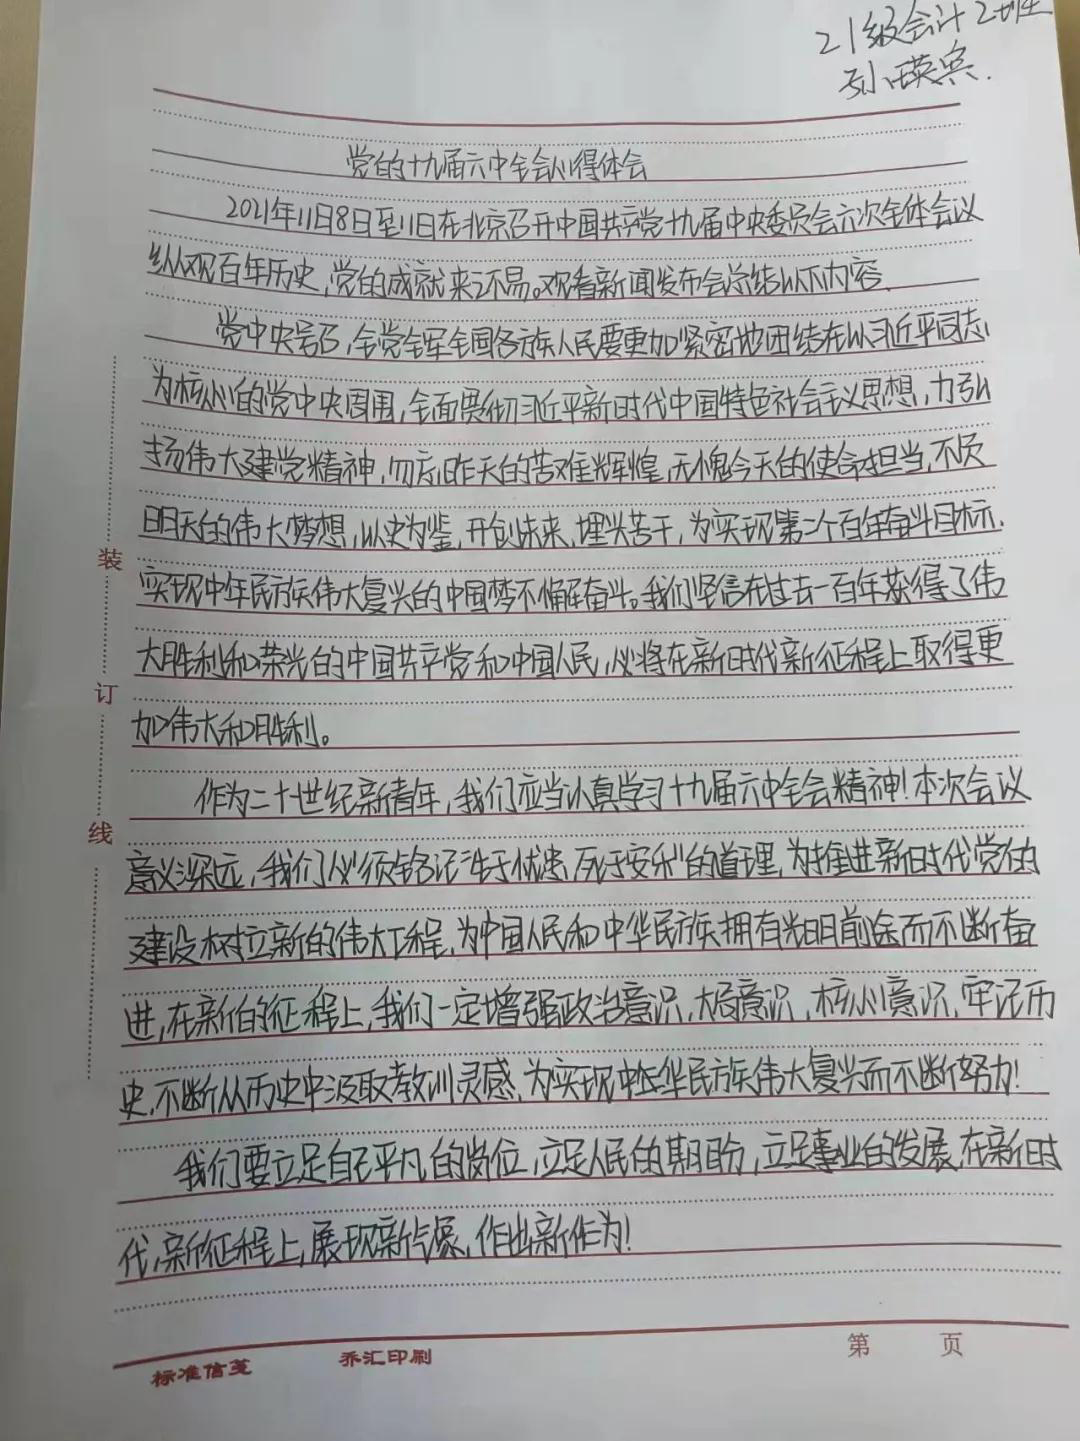 21级会计2班
孙瑛宾.
党的十九届六中全会心得体会
2021年11日8日至11日在北京召开中国共产党十九届中央委员会六次全体会议
纵观百年历史,党的成就来之不易。观看新闻发布会总结以下内容.
党中央号召,全党全军全国各族人民要更加紧密地团结在以习近平同志
为核心的党中央周围,全面贯彻习近平新时代中国特色社会主义思想,力弘
扬伟大建党精神,勿忘昨天的苦难辉煌,无愧今天的使命担当,不负
明天的伟大梦想,以史为鉴,开创未来,埋头苦干,为实现第二个百年奋斗目标.
实现中年民族伟大复兴的中国梦不懈奋斗。我们坚信在过去一百年获得了伟
大胜利和荣光的中国共产党和中国人民,必将在新时代新征程上取得更
加伟大和胜利。
作为二十世纪新青年,我们应当认真学习十九届六中全会精神!本次会议
意义深远,我们必须铭记"生于忧患,死于安乐"的道理,为推进新时代党的
建设树立新的伟大工程,为中国人民和中华民族拥有光明前途而不断奋
进,在新的征程上,我们一定增强政治意识,大局意识,核心意识,牢记历
史,不断从历史中汲取教训灵感,为实现中华民族伟大复兴而不断努力!
我们要立足自己平凡的岗位,立足人民的期盼,立足事业的发展,在新时
代,新征程上,展现新气象,作出新作为!
装
订
线
标准信笺 乔汇印刷 第 页